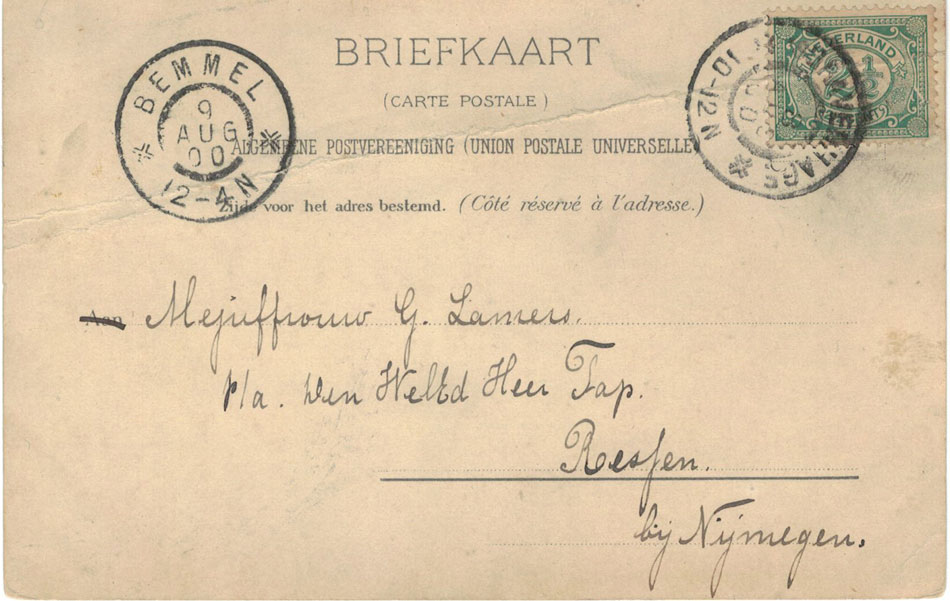 BRIEFKAART
(CARTE POSTALE)
ALGEMEENE POSTVEREENIGING (UNION POSTALE UNIVERSELLE)
Zijde voor het adres bestemd. (Côté réservé à l'adresse.)
BEMMEL
9
AUG
00
12-4N
NEDERLAND
2½
HAGE
N12-10
Aan Mejuffrouw G. Lamers.
p/a. den WelEd Heer Tap.
Ressen.
bij Nijmegen.